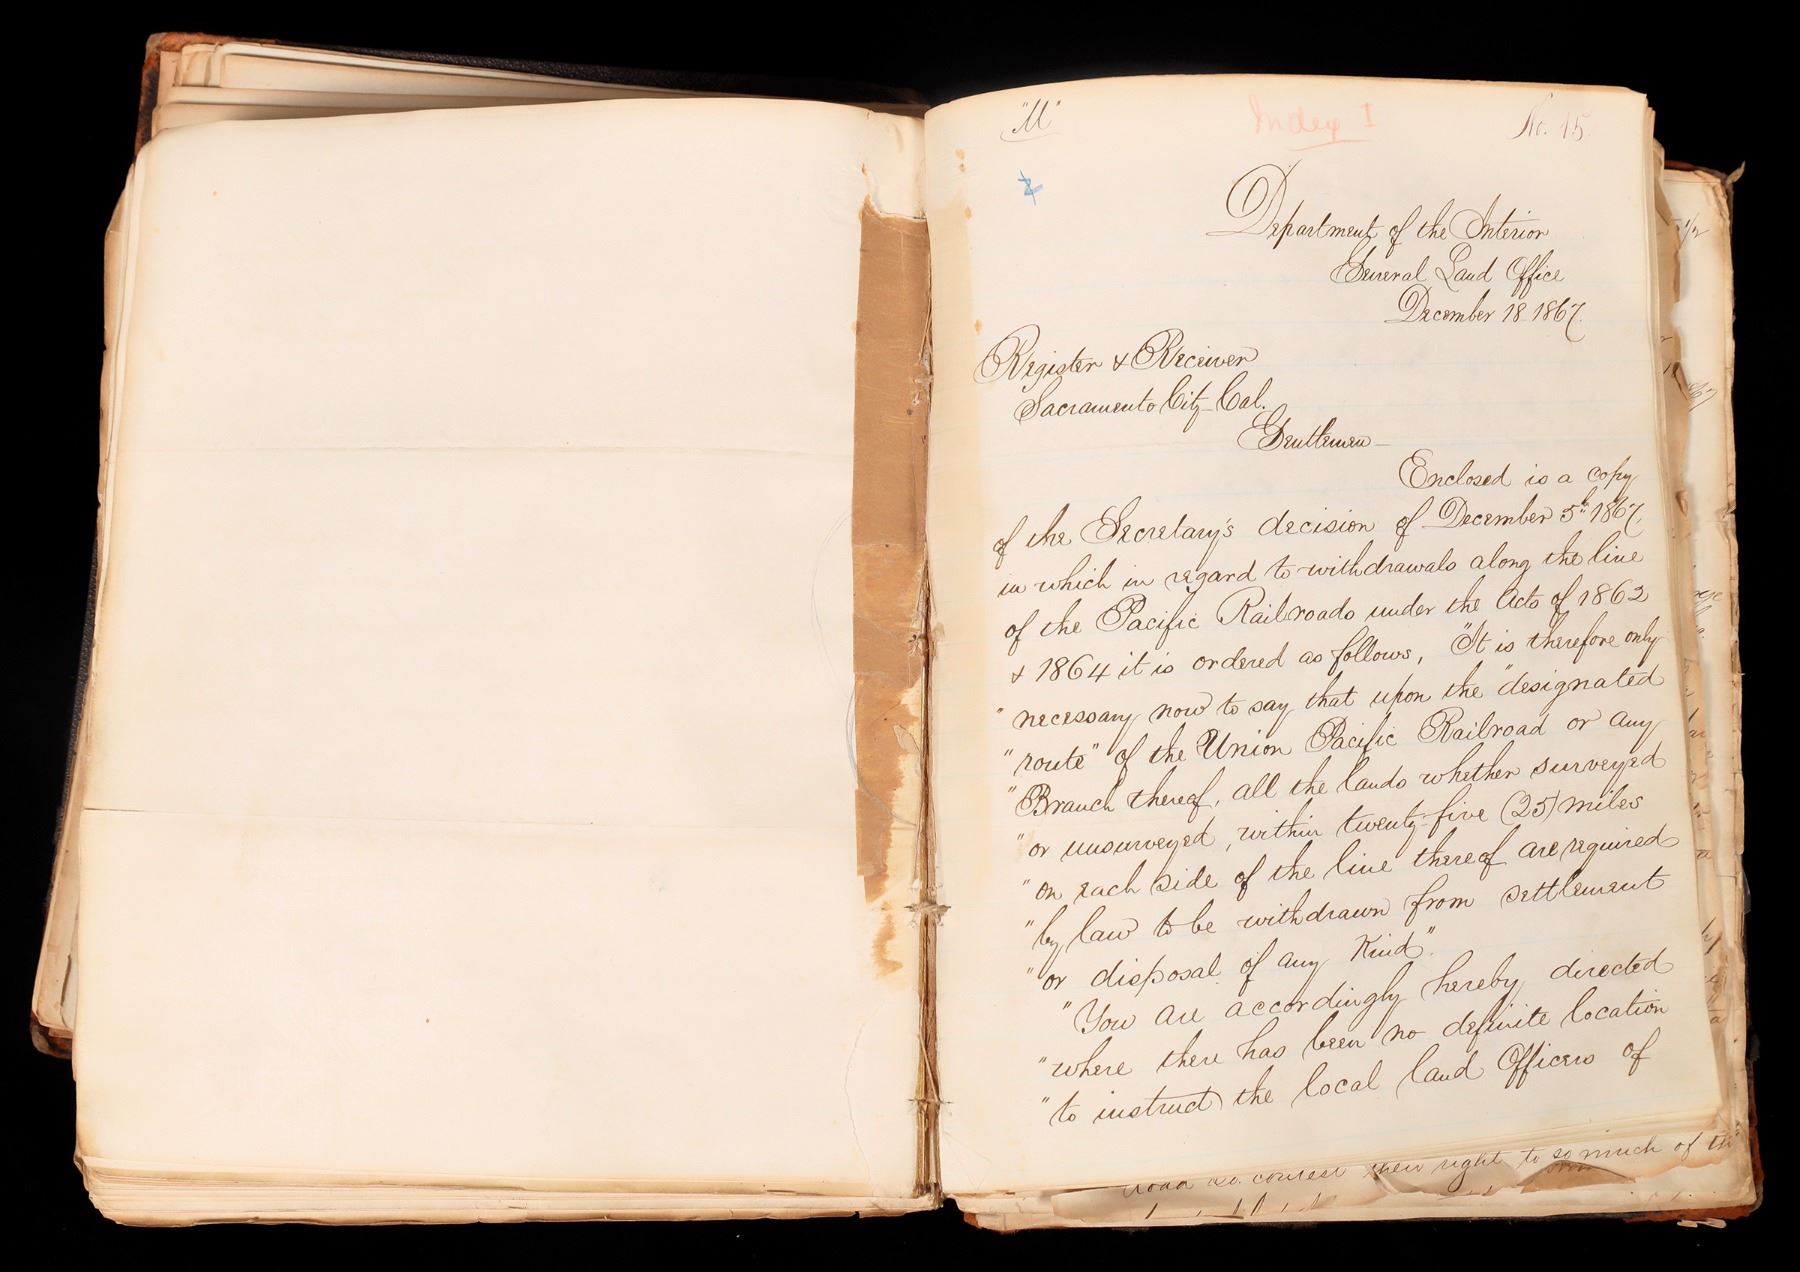 "M" Index I No. 15.
Department of the Interior
General Land Office
December 18 1867.
Register & Receiver
Sacramento City Cal.
Gentlemen –
Enclosed is a copy
of the Secretary's decision of December 5th 1867,
in which in regard to withdrawals along the line
of the Pacific Railroads under the Acts of 1862
& 1864 it is ordered as follows, "It is therefore only
" necessary now to say that upon the "designated
" route" of the Union Pacific Railroad or any
" Branch thereof, all the lands whether surveyed
" or unsurveyed, within twenty-five (25) miles
" on each side of the line thereof are required
" by law to be withdrawn from settlement
" or disposal of any kind".
" You are accordingly hereby directed
" where there has been no definite location
" to instruct the local land Officers of
their right to so much of the